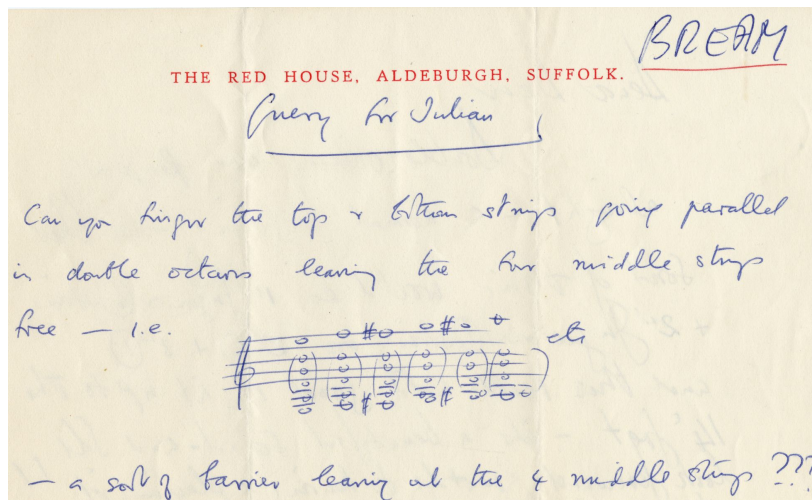 BREAM
THE RED HOUSE, ALDEBURGH, SUFFOLK.
Query for Julian
Can you finger the top & bottom strings going parallel
in double octaves leaving the four middle strings
free — I.e.
etc
— a sort of barrier leaving out the 4 middle strings ???